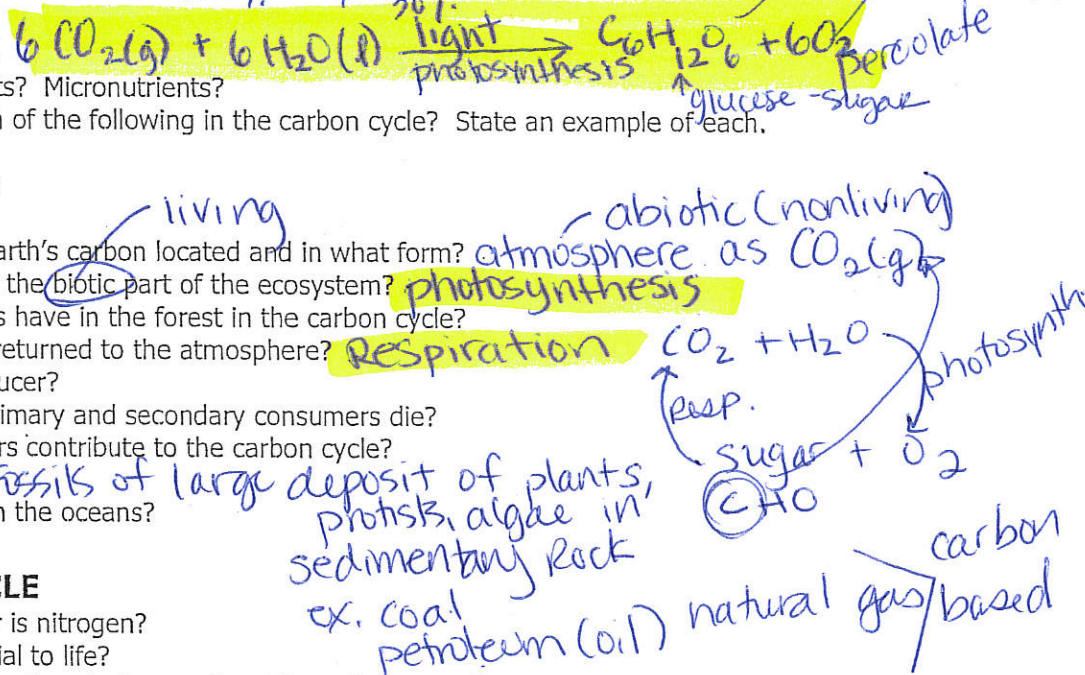 30%
6 CO₂(g) + 6 H₂O(l) light photosynthesis → C₆H₁₂O₆ + 6O₂
percolate
↑ glucese - sugar
ts? Micronutrients?
of the following in the carbon cycle? State an example of each.
living
abiotic (nonliving)
arth's carbon located and in what form? atmosphere as CO₂(g)
the biotic part of the ecosystem? photosynthesis
s have in the forest in the carbon cycle?
returned to the atmosphere? Respiration
CO₂ + H₂O
photosynth
ucer?
Resp.
imary and secondary consumers die?
rs contribute to the carbon cycle?
sugar + O₂
CHO
fossils of large deposit of plants,
n the oceans?
protists, algae in
sedimentary Rock
CLE
ex. coal
petroleum (oil) natural gas
carbon
based
r is nitrogen?
ial to life?